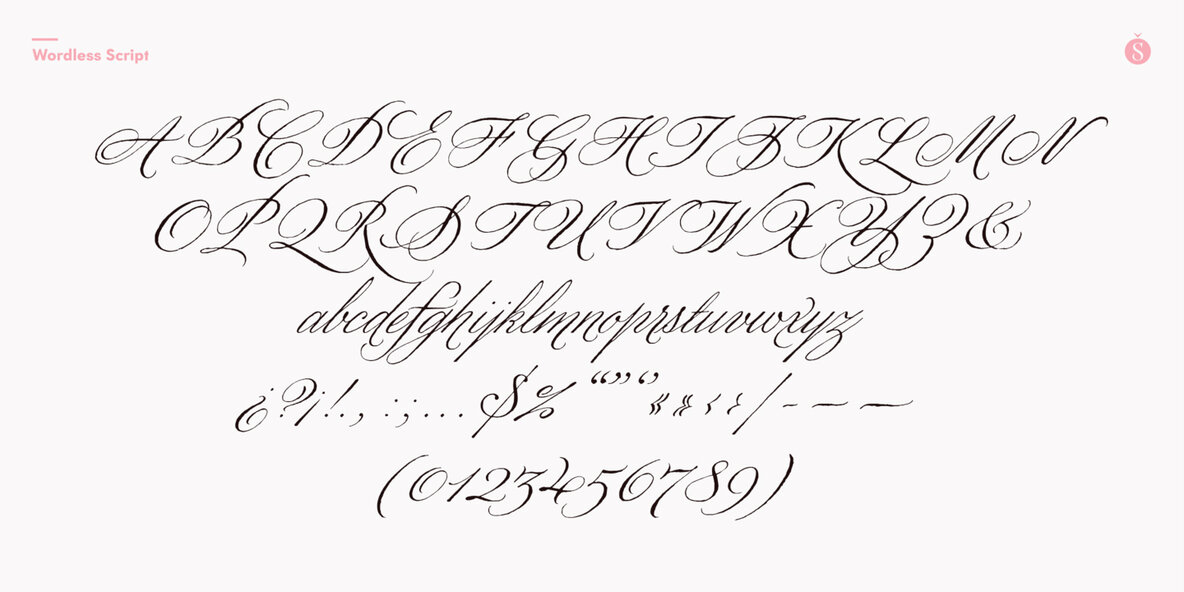 Wordless Script
Š
ABCDEFGHIJKLMN
OPQRSTUVWXYZ&
abcdefghijklmnopqrstuvwxyz
¿?¡!.,:;...$%“”‘’«»‹›/-–—
(0123456789)